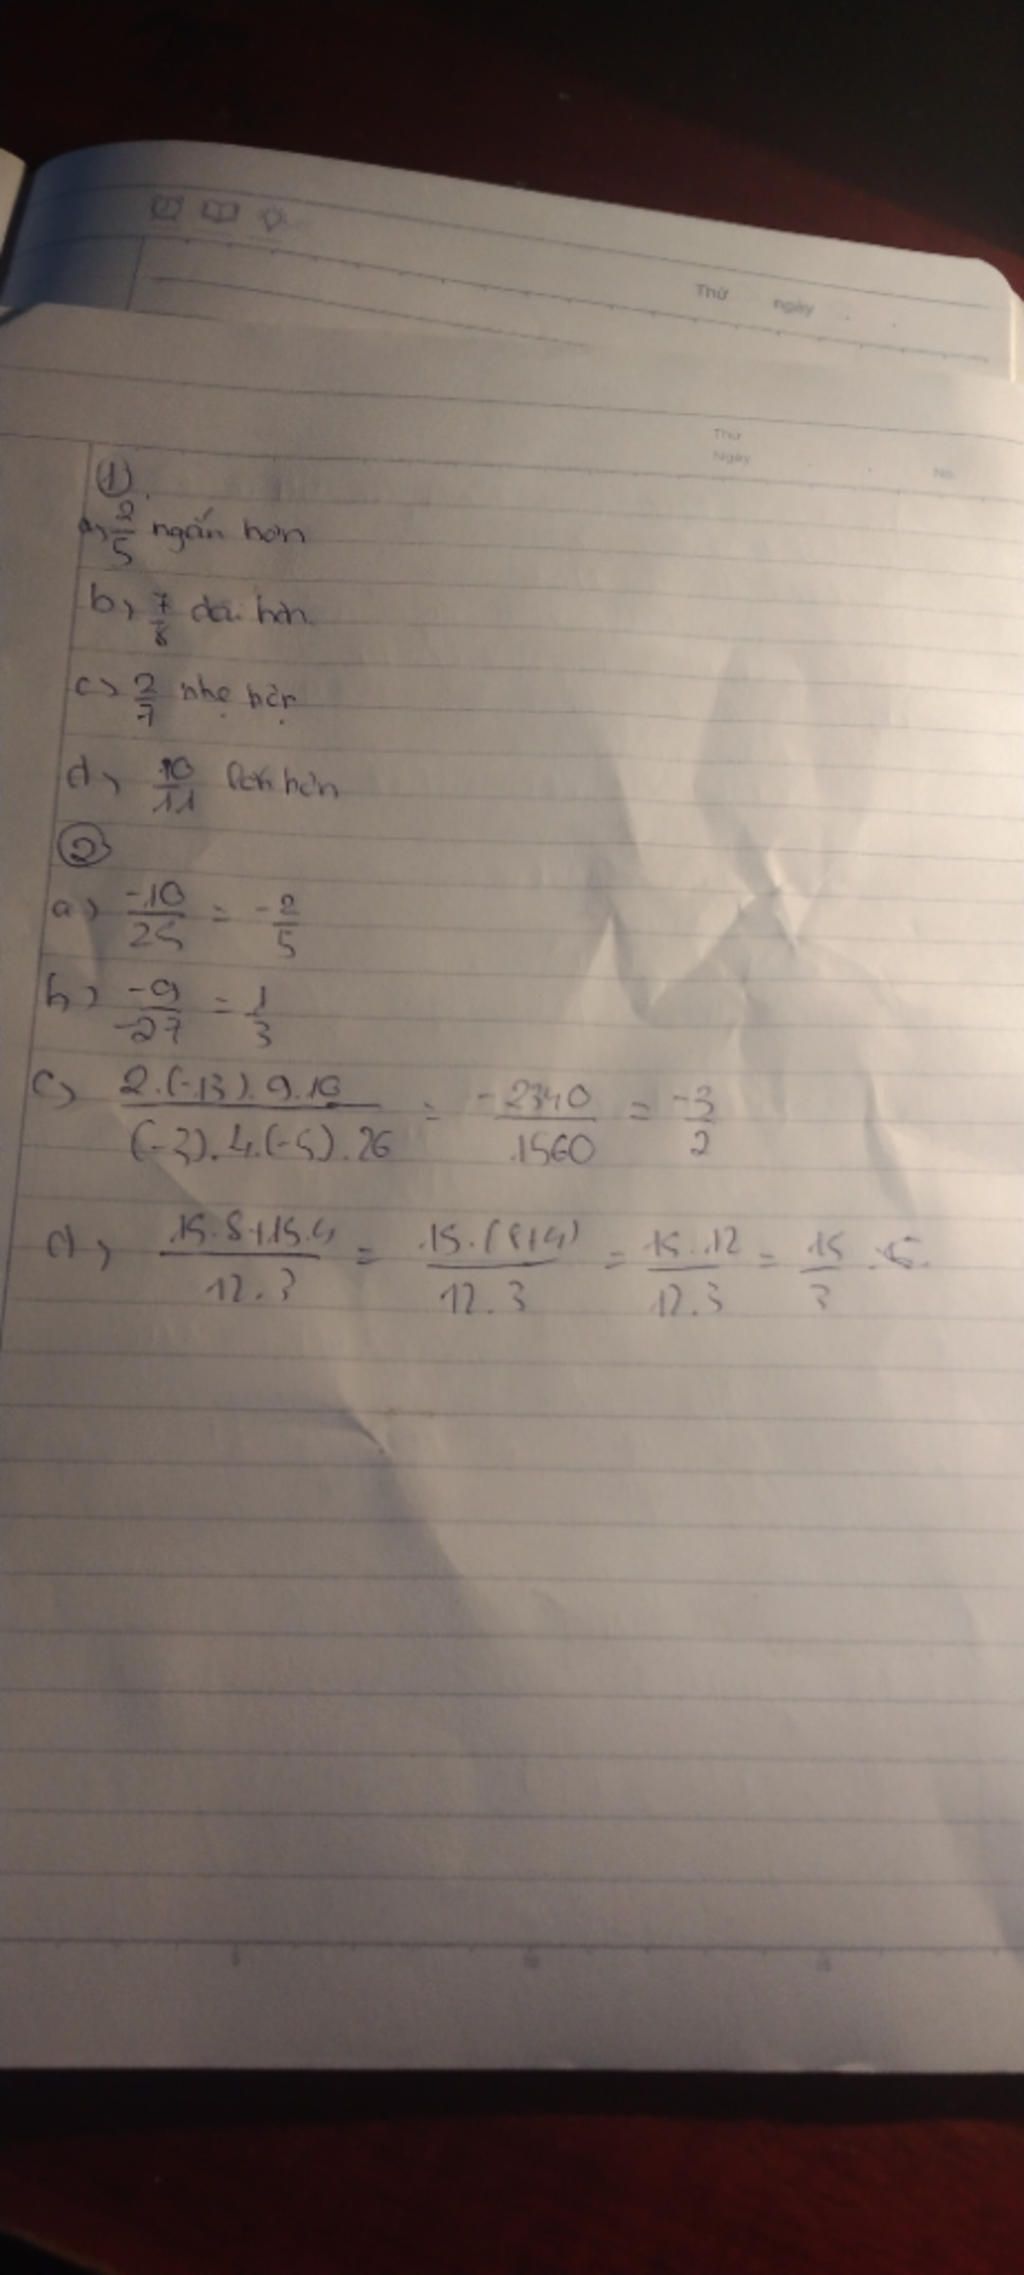 Thứ ngày
Thứ
Ngày No.
①
a, 2/5 ngắn hơn
b, 7/8 dài hơn
c, 2/7 nhẹ hơn
d, 10/11 lớn hơn
②
a) -10/25 = -2/5
b) -9/-27 = 1/3
c) 2.(-13).9.10/(-3).4.(-5).26 = -2340/1560 = -3/2
d, 15.8+15.4/12.3 = 15.(8+4)/12.3 = 15.12/12.3 = 15/3 = 5.
5 10 15